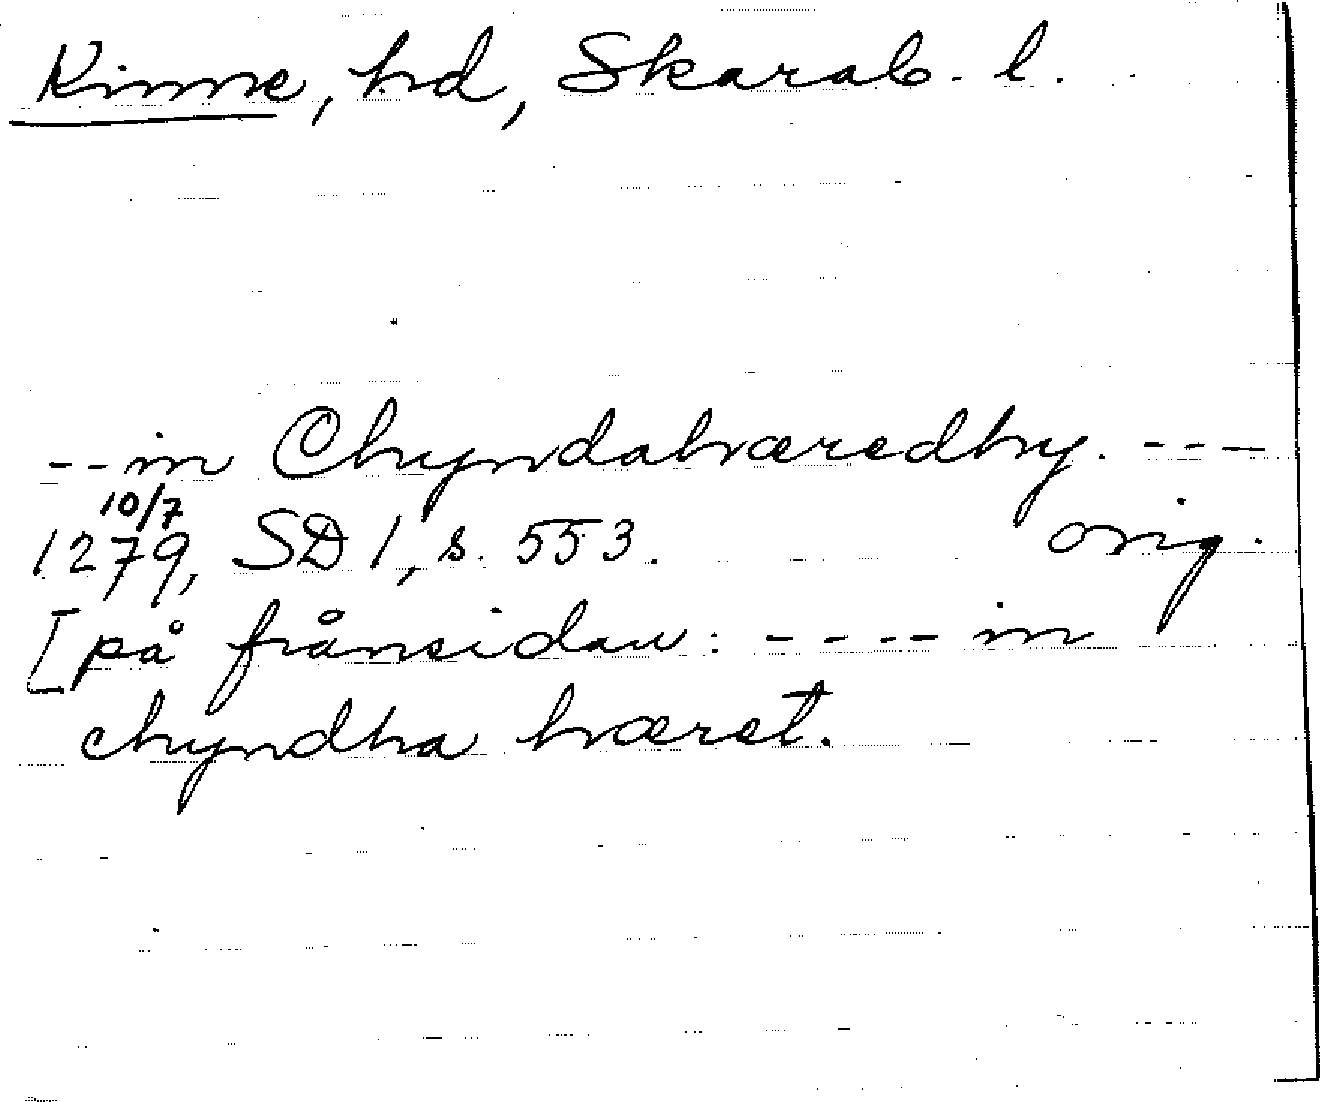 Kinne, hd, Skarab. l.
-- in Chyndahæredhy. ---
10/7
1279, SD 1, s. 553. orig.
[på frånsidan: ---- in
chyndha hæret.